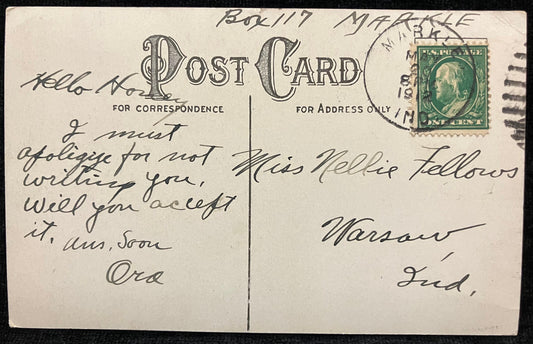 Box 117 MARKLE
POST CARD
FOR CORRESPONDENCE
FOR ADDRESS ONLY
MARKLE
MAY
8 AM
IND.
U.S. POSTAGE
ONE CENT
Hello
I must
apoligize for not
writing you,
Will you accept
it. Ans. Soon
Ora
Miss Nellie Fellows
Warsaw,
Ind.